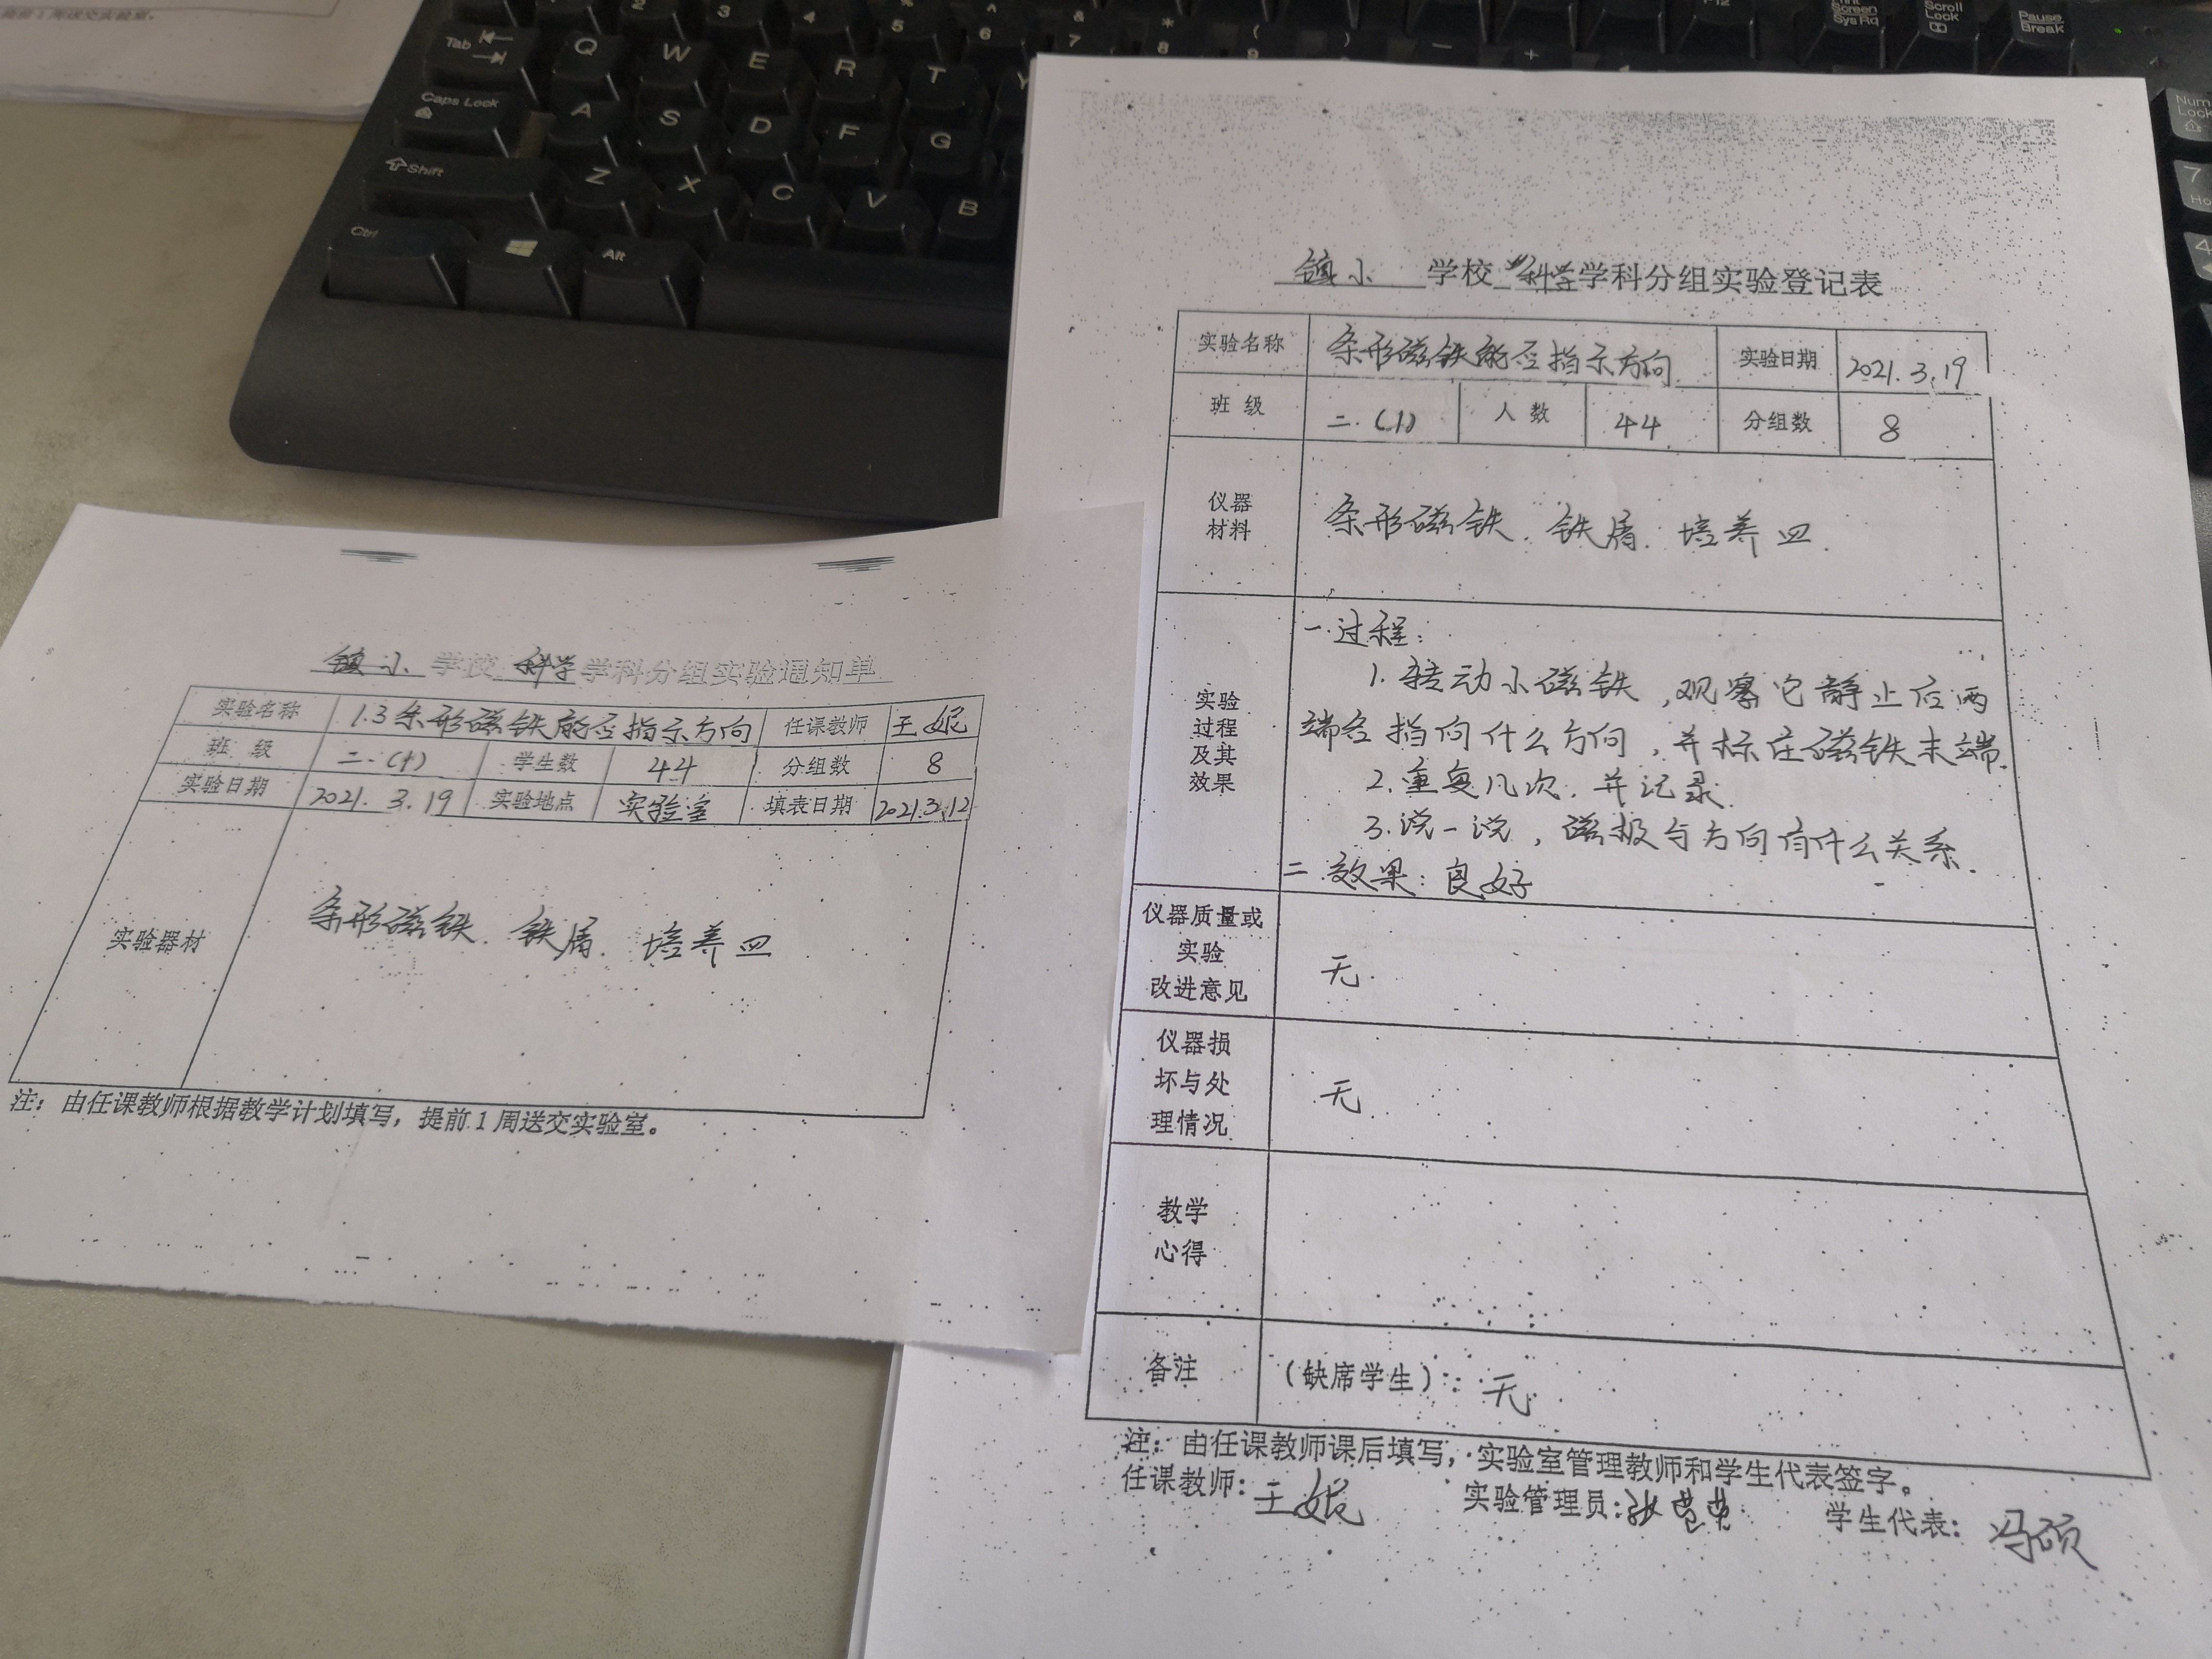 Tab
Q W E R T Y
Caps Lock
A S D F G
Shift
Z X C V B
Ctrl
Alt
Print Screen SysRq
Scroll Lock
Pause Break
Num Lock
镇小 学校 科学 学科分组实验通知单
实验名称 1.3条形磁铁能否指示方向 任课教师 王妮
班 级 二.(1) 学生数 44 分组数 8
实验日期 2021. 3. 19 实验地点 实验室 填表日期 2021.3.12
实验器材 条形磁铁. 铁屑. 培养皿
注：由任课教师根据教学计划填写，提前1周送交实验室。
镇小 学校 科学 学科分组实验登记表
实验名称 条形磁铁能否指示方向 实验日期 2021.3.19
班 级 二.(1) 人 数 44 分组数 8
仪器
材料
条形磁铁. 铁屑. 培养皿.
实验
过程
及其
效果
一.过程：
1. 转动小磁铁，观察它静止后两
端各指向什么方向，并标在磁铁末端.
2. 重复几次. 并记录.
3. 说一说，磁极与方向有什么关系.
二.效果：良好
仪器质量或
实验
改进意见
无.
仪器损
坏与处
理情况
无.
教学
心得
备注 （缺席学生）：无.
注：由任课教师课后填写，实验室管理教师和学生代表签字。
任课教师：王妮 实验管理员： 学生代表：冯硕